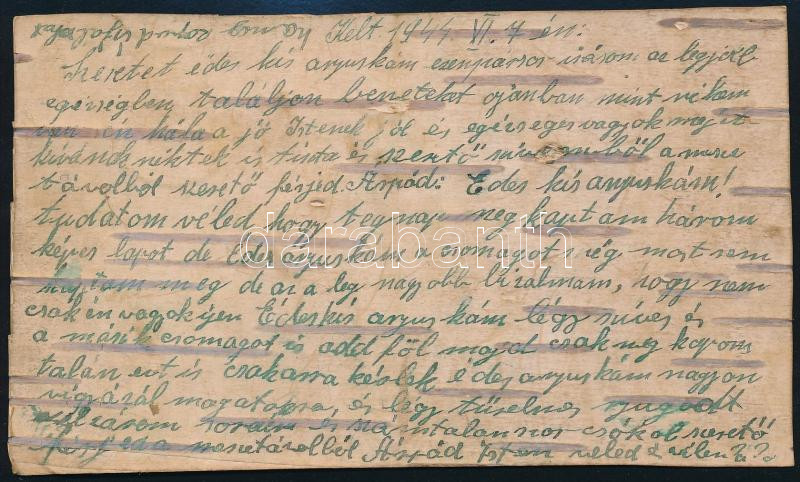 Kelt 1944 VI. 7 én:
Szeretet édes kis anyuskám ezenpársor írásom az legjobb
egésségben találjon beneteket ojanban mint nékem
van én hála a jó Istenek jól és egésségesvagyok majit
kivánok néktek is tiszta és szerető szivemből a messze
távolból szerető férjed Árpád: Édes kis anyuskám!
tudatom véled hogy tegnap meg kaptam három
képes lapot de Édes anyuskám a csomagot még mostsem
kaptam meg de az a leg nagyobb bizalmam, hogy nem
csak én vagok ijen Édeskis anyuskám légy szíves és
a másik csomagot is add föl majd csak meg kapom
talán ezt is csak arra kérlek édes anyuskám nagyon
vigyázzál magatokra, és légy türelmes nyugodt
zárom soraim és számtalanszor csókol szerető
férjed a messzetávolból Árpád Isten veled
darabanth